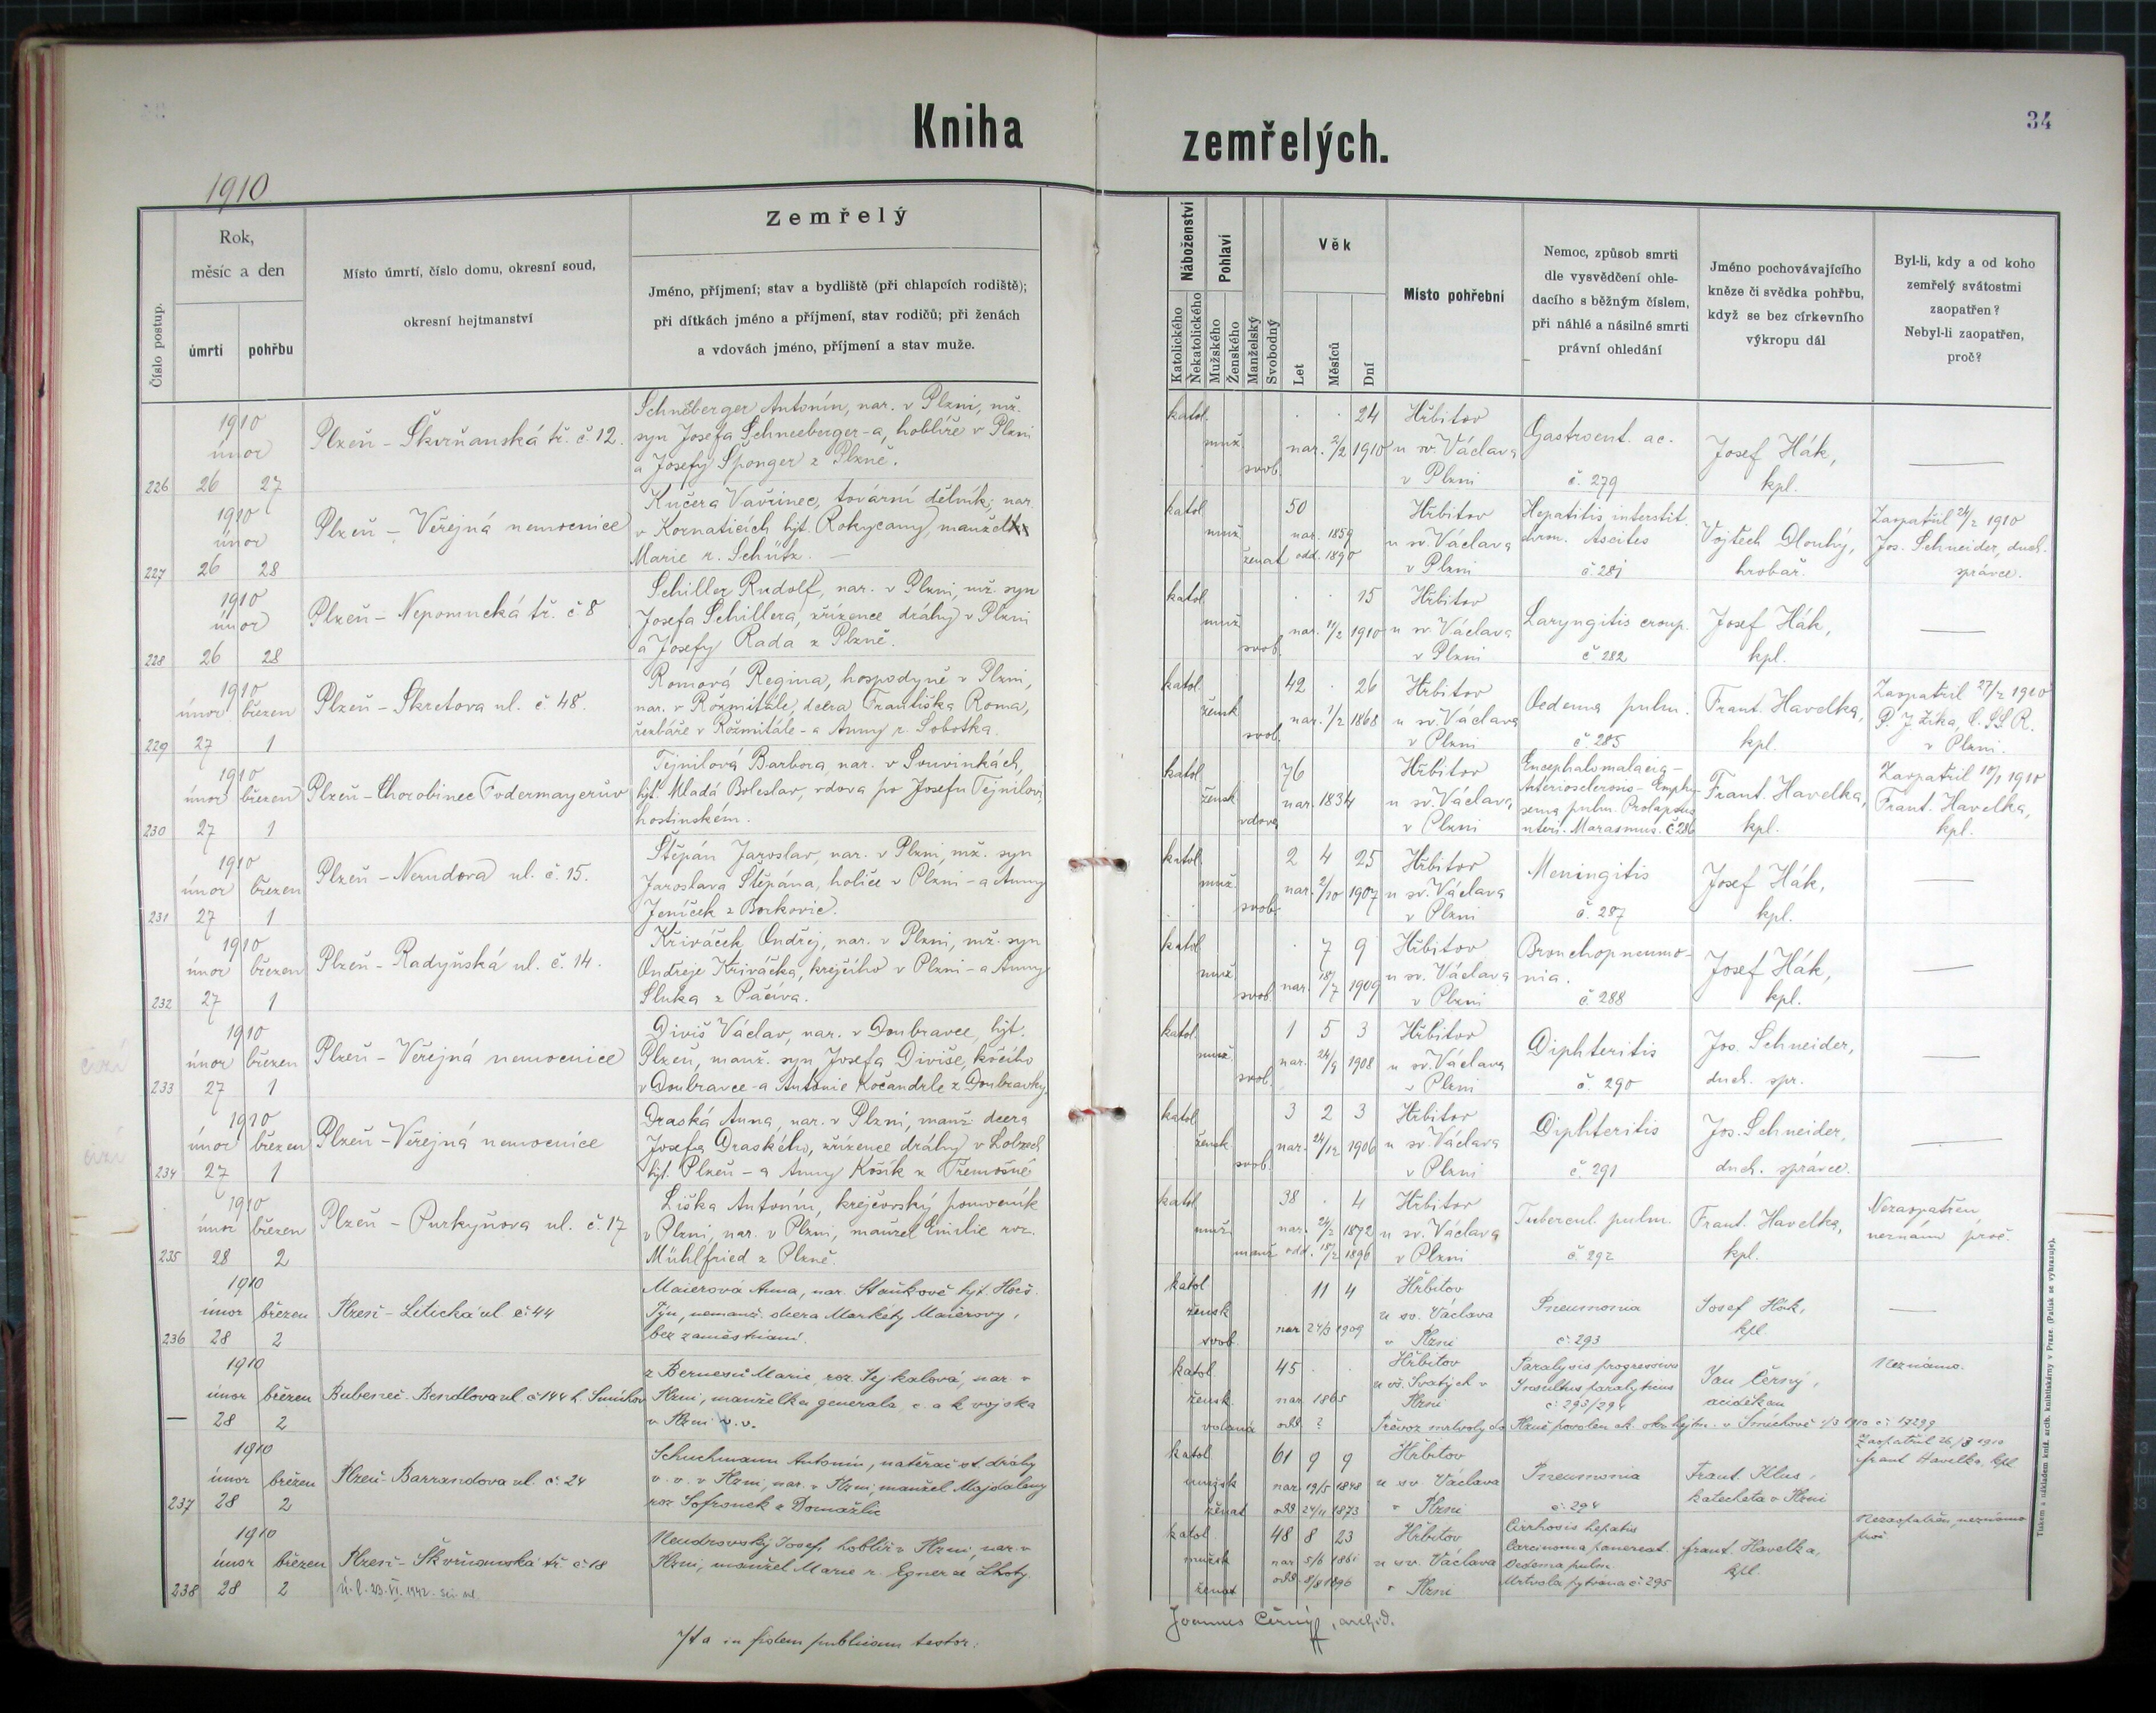 34
Kniha zemřelých.
1910
Číslo postup.
Rok,
měsíc a den
úmrtí
pohřbu
Místo úmrtí, číslo domu, okresní soud,
okresní hejtmanství
Zemřelý
Jméno, příjmení; stav a bydliště (při chlapcích rodiště);
při dítkách jméno a příjmení, stav rodičů; při ženách
a vdovách jméno, příjmení a stav muže.
Náboženství
Katolického
Nekatolického
Pohlaví
Mužského
Ženského
Manželský
Svobodný
Věk
Let
Měsíců
Dní
Místo pohřební
Nemoc, způsob smrti
dle vysvědčení ohle-
dacího s běžným číslem,
při náhlé a násilné smrti
právní ohledání
Jméno pochovávajícího
kněze či svědka pohřbu,
když se bez církevního
výkropu dál
Byl-li, kdy a od koho
zemřelý svátostmi
zaopatřen?
Nebyl-li zaopatřen,
proč?
226
1910
únor
26 27
Plzeň – Škvrňanská tř. č. 12.
Schnéberger Antonín, nar. v Plzni, mž.
syn Josefa Schneeberger-a, hoblíře v Plzni
a Josefy Sponger z Plzně.
katol. muž. svob.
24
nar. 2/2 1910
Hřbitov
u sv. Václava
v Plzni
Gastroent. ac.
č. 279
Josef Hák,
kpl.
—
227
1910
únor
26 28
Plzeň – Veřejná nemocnice
Kučera Vavřinec, tovární dělník, nar.
v Kornaticích hjt. Rokycany, manžel
Marie r. Schütz. —
katol. muž. ženat
50
nar. 1859
odd. 1890
Hřbitov
u sv. Václava
v Plzni
Hepatitis interstit.
chron. Ascites
č. 281
Vojtěch Dlouhý,
hrobař.
Zaopatřil 24/2 1910
Jos. Schneider, duch.
správce.
228
1910
únor
26 28
Plzeň – Nepomucká tř. č 8
Schiller Rudolf, nar. v Plzni, mž. syn
Josefa Schillera, zřízence dráhy v Plzni
a Josefy Rada z Plzně.
katol. muž. svob.
15
nar. 11/2 1910
Hřbitov
u sv. Václava
v Plzni
Laryngitis croup.
č 282
Josef Hák,
kpl.
—
229
1910
únor březen
27 1
Plzeň – Skretova ul. č. 48.
Romová Regina, hospodyně v Plzni,
nar. v Rožmitále, dcera Františka Roma,
řezbáře v Rožmitále – a Anny r. Sobotka.
katol. žensk. svob.
42 . 26
nar. 1/2 1868
Hřbitov
u sv. Václava
v Plzni
Oedema pulm.
č. 285
Frant. Havelka,
kpl.
Zaopatřil 27/2 1910
P. J. Zika, C. SS. R.
v Plzni.
230
1910
únor březen
27 1
Plzeň – Chorobinec Fodermayerův
Tejnilová Barbora, nar. v
hjt. Mladá Boleslav, vdova po Josefu Tejnilovi,
hostinském.
katol. žensk. vdova
76
nar. 1834
Hřbitov
u sv. Václava
v Plzni
Encephalomalacia –
Arteriosclerosis – Emphy-
sema pulm. Prolapsus
uteri. Marasmus. č 286
Frant. Havelka,
kpl.
Zaopatřil 1910
Frant. Havelka,
kpl.
231
1910
únor březen
27 1
Plzeň – Nerudova ul. č. 15.
Štěpán Jaroslav, nar. v Plzni, mž. syn
Jaroslava Štěpána, holiče v Plzni – a Anny
Jeníček z Borkovic.
katol. muž. svob.
2 4 25
nar. 2/10 1907
Hřbitov
u sv. Václava
v Plzni
Meningitis
č. 287
Josef Hák,
kpl.
—
232
1910
únor březen
27 1
Plzeň – Radyňská ul. č. 14.
Křiváček Ondřej, nar. v Plzni, mž. syn
Ondřeje Křiváčka, krejčího v Plzni – a Anny
Sluka z Pačíva.
katol. muž. svob.
7 9
nar. 18/7 1909
Hřbitov
u sv. Václava
v Plzni
Bronchopneumo-
nia.
č. 288
Josef Hák,
kpl.
—
233
1910
únor březen
27 1
Plzeň – Veřejná nemocnice
Diviš Václav, nar. v Doubravce, hjt.
Plzeň, manž. syn Josefa Diviše, kočího
v Doubravce – a Antonie Kočandrle z Doubravky.
katol. muž. svob.
1 5 3
nar. 24/9 1908
Hřbitov
u sv. Václava
v Plzni
Diphteritis
č. 290
Jos. Schneider,
duch. spr.
—
234
1910
únor březen
27 1
Plzeň – Veřejná nemocnice
Draská Anna, nar. v Plzni, manž. dcera
Josefa Draského, zřízence dráhy v Lobzích
hjt. Plzeň – a Anny Košík z Třemošné
katol. žensk. svob.
3 2 3
nar. 24/12 1906
Hřbitov
u sv. Václava
v Plzni
Diphteritis
č. 291
Jos. Schneider,
duch. správce.
—
235
1910
únor březen
28 2
Plzeň – Purkyňova ul. č. 17
Liška Antonín, krejčovský pomocník
v Plzni, nar. v Plzni, manžel Emilie roz.
Mühlfried z Plzně.
katol. muž. manž.
38 . 4
nar. 24/2 1872
odd. 18/2 1896
Hřbitov
u sv. Václava
v Plzni
Tubercul. pulm.
č. 292
Frant. Havelka,
kpl.
Nezaopatřen
neznámo proč.
236
1910
únor březen
28 2
Plzeň – Letická ul č: 44
Maierová Anna, nar. Staňkově hjt. Horš.
Týn, nemanž. dcera Markéty Maierovy,
bez zaměstnání.
katol. žensk. svob.
11 4
nar 24/3 1909
Hřbitov
u sv. Václava
v Plzni
Pneumonia
č: 293
Josef Hák,
kpl.
—
—
1910
únor březen
28 2
Bubeneč – Bendlova ul. č 144 h. Smíchov
z Marie, roz. Sejkalová, nar. v
Plzni, manželka generála c. a k vojska
v Plzni v. v.
katol. žensk.
45
nar. 1865
odd. ?
Hřbitov
u vš. Svatých v
Plzni
Paralysis progressiva
Insultus paralyticus
č: 293/294
Jan Černý,
arciděkan
Neznámo.
Převoz mrtvoly do Plzně povolen ck. okr. hejtm. v Smíchově 1/3 1910 č: 17299
237
1910
únor březen
28 2
Plzeň – Barrandova ul. č: 24
Schuchmann Antonín, natěrač st. dráhy
v. v. v Plzni, nar. v Plzni, manžel Majdaleny
roz Sofronek z Domažlic
katol. mužsk ženat
61 9 9
nar 19/5 1848
odd 24/11 1873
Hřbitov
u sv Václava
v Plzni
Pneumonia
č: 294
Frant. Klus,
katecheta v Plzni
Zaopatřil 1910
frant Havelka, kpl
238
1910
únor březen
28 2
Plzeň – Škvrňanská tř. č: 18
ú. l. 23. VI. 1942.
Neudrovský Josef, hoblíř v Plzni, nar. v
Plzni, manžel Marie r. Egner ze Lhoty
katol. mužsk ženat
48 8 23
nar 5/6 1861
odd. 8/8 1896
Hřbitov
u sv. Václava
v Plzni
Cirrhosis hepatis
Carcinoma pancreat.
Oedema pulm.
Mrtvola pytvána č: 295
frant. Havelka,
kpl.
Nezaopatřen, neznámo
proč
Ita in fidem publicam testor:
Joannes Černý, archid.
Tiskem a nákladem kníž. arcib. knihtiskárny v Praze. (Patisk se vyhrazuje).